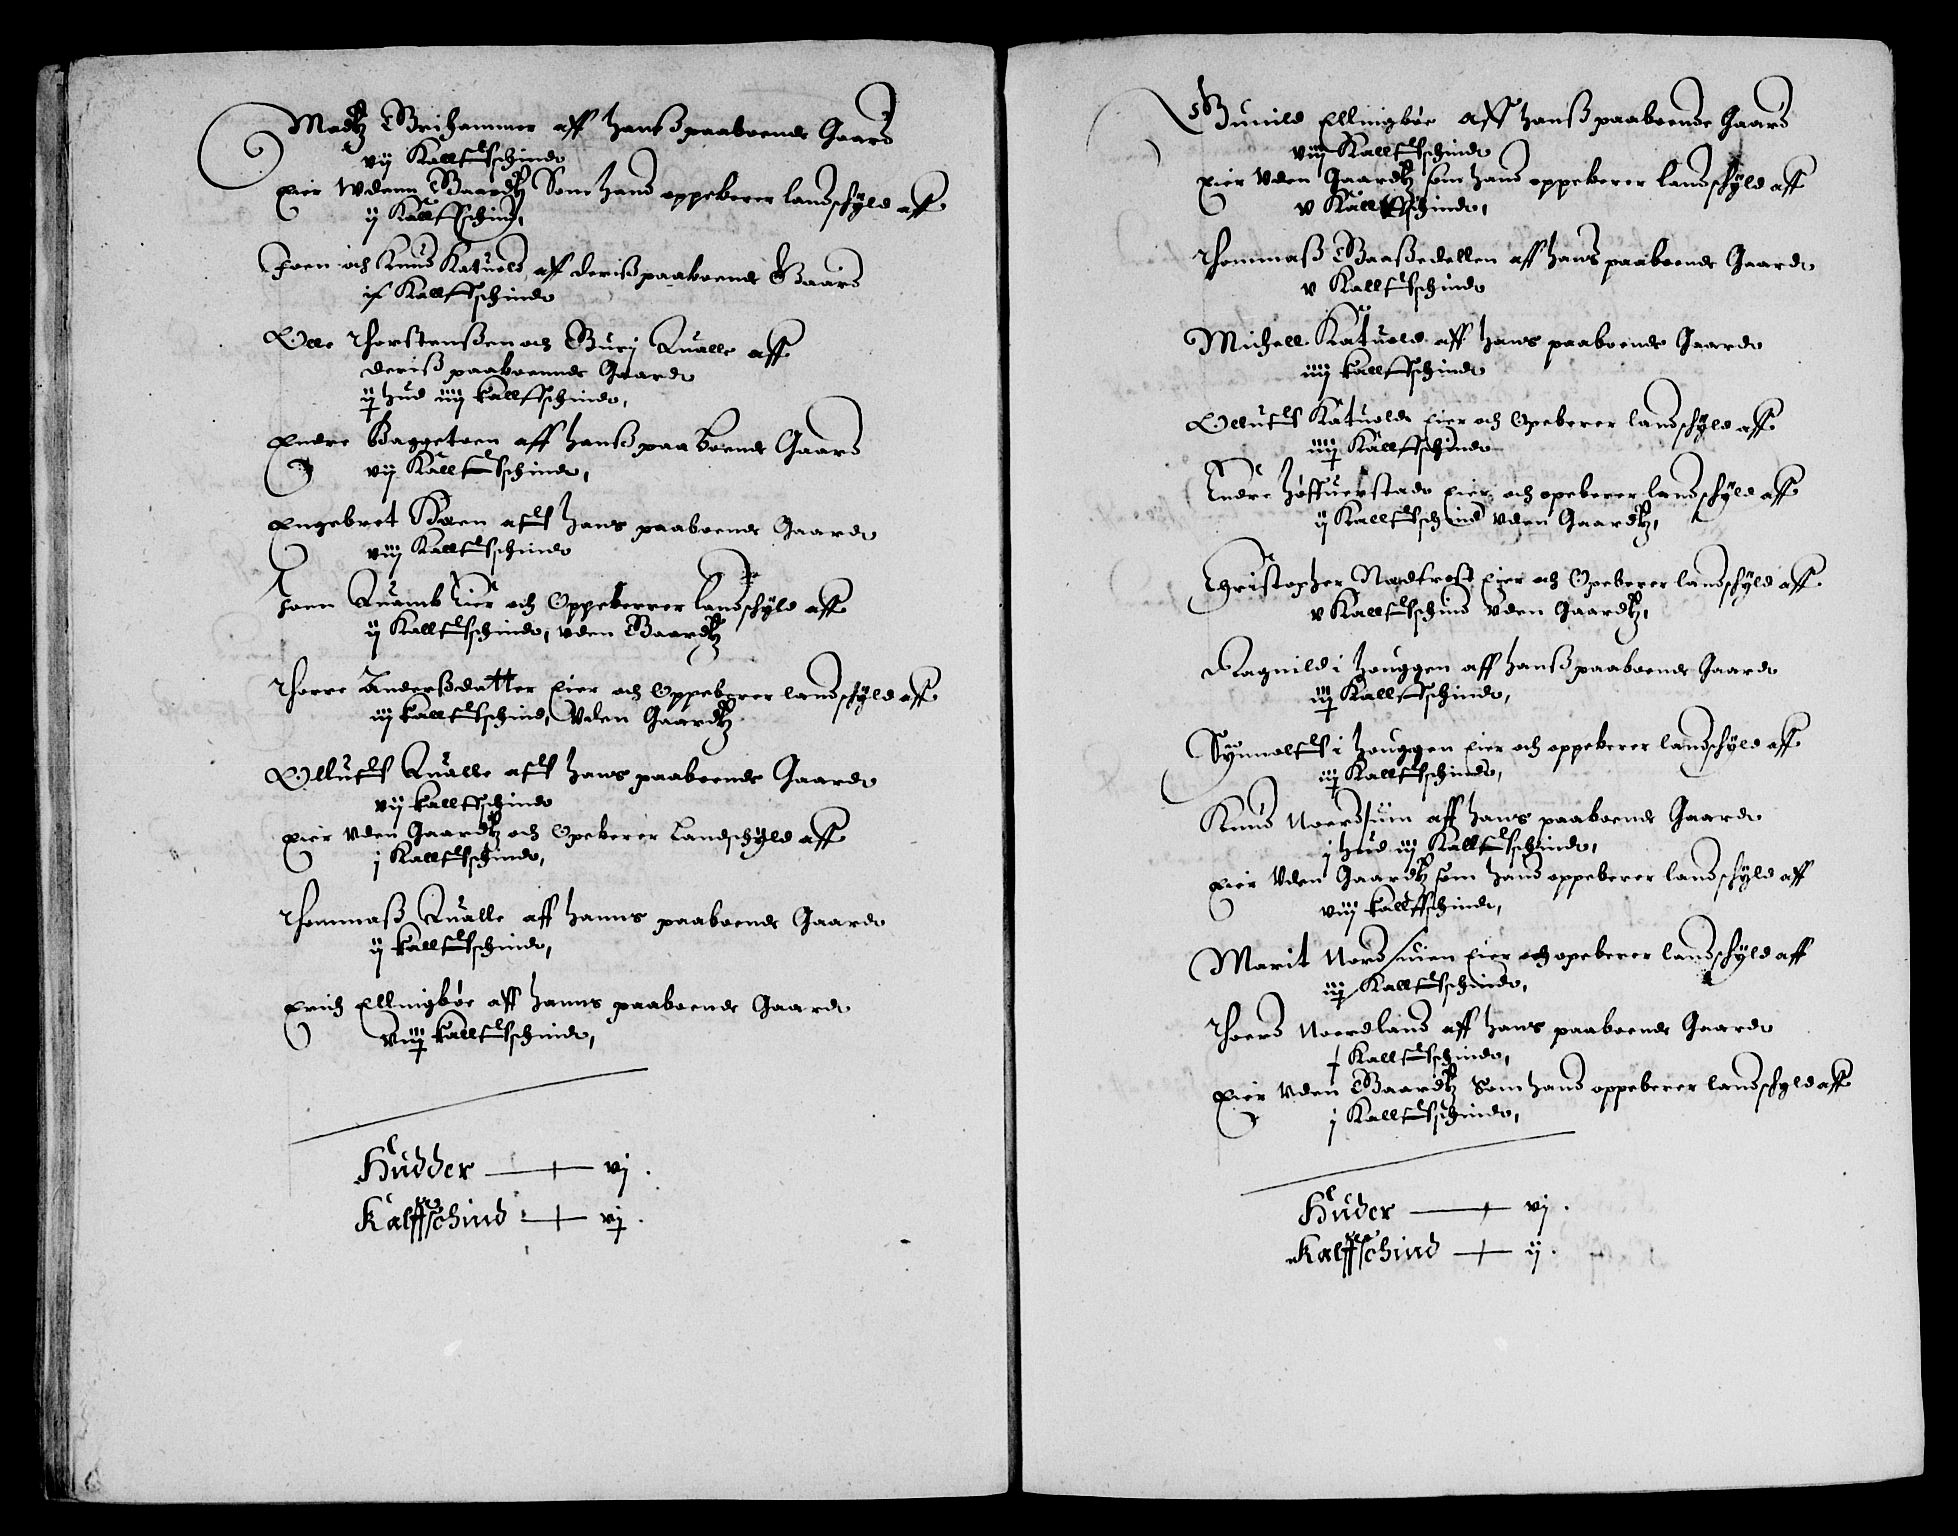 Madtz Brihammer aff hanß paaboende Gaard
vij Kallffschind
Eier wdenn Gaardtz Som hand oppeberer landschyld aff
ij Kallffschind,
Joen och Knud Katuold, aff deriß paaboende Gaard
ix Kallffschind
Olle Thorstenßen och Guri Qualle aff
deriß paaboennde Gaard
ij hud iiij kallffschind,
Endre Baggetoen aff hanß paaboende Gaard
vij Kallffschind,
Engebret Koen aff hans paaboende Gaard
viij Kallffschind
Joen Quamb Eier och Oppeberrer landschyld aff
ij Kallffschind, vden Gaardtz
Thorre Anderßdatter Eier och Oppeberer landschyld aff
iij kallffschind, Vden Gaardtz
Olluff Qualle aff hans paaboende Gaard
vij kallffschind
Eier Vden Gaardtz och Opeberer Landschyld aff
j Kallffschind,
Thommaß Qualle aff hanns paaboende Gaard
ij kallffschind,
Erich Ellingbøe aff hanns paaboende Gaard
viiij kallffschind,
Hudder — vj.
Kalffschind — vj.
Gunild Ellingbøe aff hanß paaboende Gaard
viij Kallffschind
Eier Vden Gaardtz som hand oppeberer landschyld aff
v Kallffschind,
Thommaß Baaßedellen aff hans paaboende Gaard
v Kallffschind
Michell Katuold aff hans paaboende Gaard
iiij kallffschind
Olluff Katuold Eier och Opeberer landschyld aff
iiij Kallffschind
Endre Høffuerstad Eier och opeberer landschyld aff
ij Kallffschind vden Gaardtz,
Christopher Nordtrost Eier och Opeberer landschyld aff
v Kallffschind Vden Gaardtz,
Ragnild i houggen aff hanß paaboende Gaard
iij Kallffschind,
Synnoluff i houggen Eier och oppeberer landschyld aff
iij Kallffschind,
Knud Noordsuin aff hans paaboende Gaard
j hud iij Kallffschind,
Eier Vden Gaardtz som hand oppeberer landschyld aff
viij kallffschind,
Marit Nordsuien Eier och opeberer landschyld aff
iij Kallffschind,
Thord Noerdland aff hans paaboende Gaard
j Kallffschind,
Eier Vden Gaardtz Som hand oppeberer landschyld aff
j Kallffschind,
Huder — vj.
Kalffschind — ij.